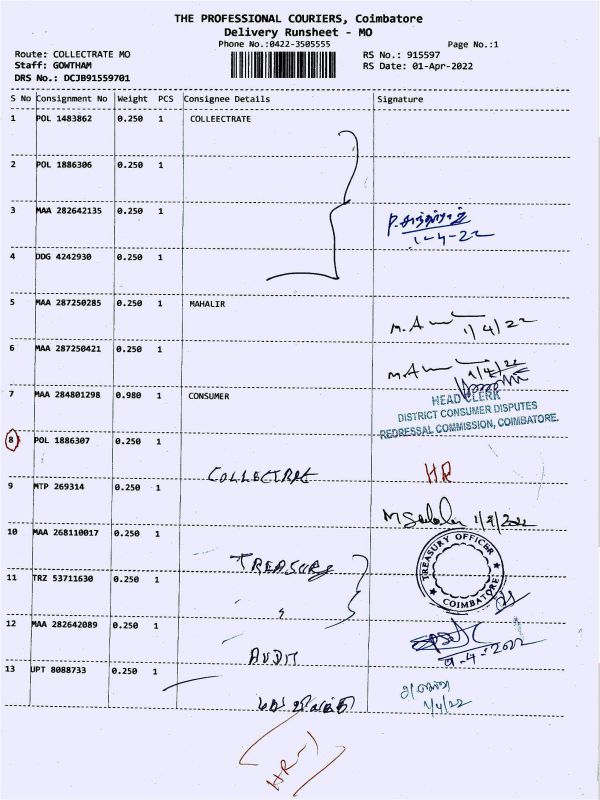 THE PROFESSIONAL COURIERS, Coimbatore
Delivery Runsheet - MO
Phone No.:0422-3505555 Page No.:1
Route: COLLECTRATE MO RS No.: 915597
Staff: GOWTHAM RS Date: 01-Apr-2022
DRS No.: DCJB91559701
S No Consignment No Weight PCS Consignee Details Signature
1 POL 1483862 0.250 1 COLLEECTRATE
2 POL 1886306 0.250 1
3 MAA 282642135 0.250 1
1-4-22
4 DDG 4242930 0.250 1
5 MAA 287250285 0.250 1 MAHALIR
1/4/22
6 MAA 287250421 0.250 1
1/4/22
7 MAA 284801298 0.980 1 CONSUMER
HEAD CLERK
DISTRICT CONSUMER DISPUTES
REDRESSAL COMMISSION, COIMBATORE.
8 POL 1886307 0.250 1
COLLECTRAE HR
9 MTP 269314 0.250 1
1/4/2022
10 MAA 268110017 0.250 1
TREASURY TREASURY OFFICER
11 TRZ 53711630 0.250 1
COIMBATORE
12 MAA 282642089 0.250 1
AUDIT
13 UPT 8088733 0.250 1
1/4/22
HR-1